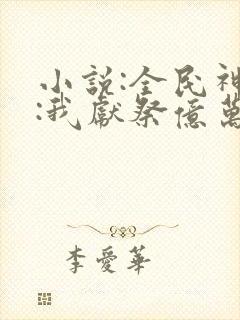 小說:全民神
:我獻祭億萬
李愛華